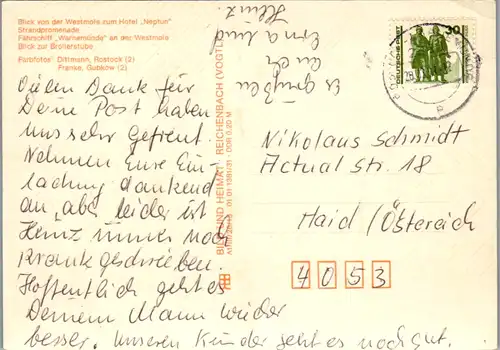 Blick von der Westmole zum Hotel „Neptun"
Strandpromenade
Fährschiff „Warnemünde" an der Westmole
Blick zur Broilerstube
Farbfotos: Dittmann, Rostock (2)
Franke, Gubkow (2)
Vielen Dank für
Deine Post haben
uns sehr gefreut.
Nehmen Eure Ein-
ladung dankend
an, aber leider ist
Heinz immer noch
Krank geschrieben.
Hoffentlich geht es
Deinem Mann wieder
besser. Unseren Kinder geht es noch gut.
Es grüßen
Euch
Erna und
Heinz.
BILD UND HEIMAT REICHENBACH (VOGTL
01 01 1381/31 · DDR 0,20 M
DEUTSCHE POST
30
Nikolaus Schmidt
Actual Str. 18
Haid / Östereich
4053